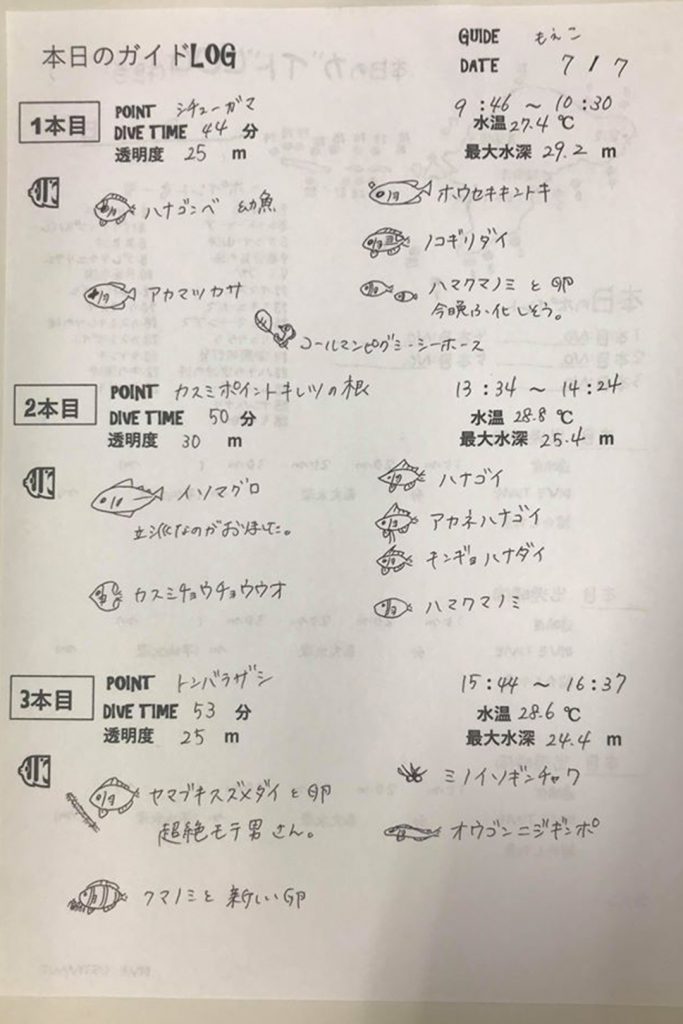 本日のガイドLOG
GUIDE もえこ
DATE 7 / 7
1本目
POINT シチューガマ
DIVE TIME 44 分
透明度 25 m
9:46 ~ 10:30
水温 27.4 ℃
最大水深 29.2 m
ハナゴンベ 幼魚
ホウセキキントキ
ノコギリダイ
アカマツカサ
ハマクマノミ と 卵
今晩ふ化しそう。
コールマンピグミーシーホース
2本目
POINT カスミポイントキレツの根
DIVE TIME 50 分
透明度 30 m
13:34 ~ 14:24
水温 28.8 ℃
最大水深 25.4 m
イソマグロ
立派なのがおりました。
ハナゴイ
アカネハナゴイ
キンギョハナダイ
カスミチョウチョウウオ
ハマクマノミ
3本目
POINT トンバラザシ
DIVE TIME 53 分
透明度 25 m
15:44 ~ 16:37
水温 28.6 ℃
最大水深 24.4 m
ヤマブキスズメダイ と 卵
超絶モテ男さん。
ミノイソギンチャク
オウゴンニジギンポ
クマノミと 新しい卵